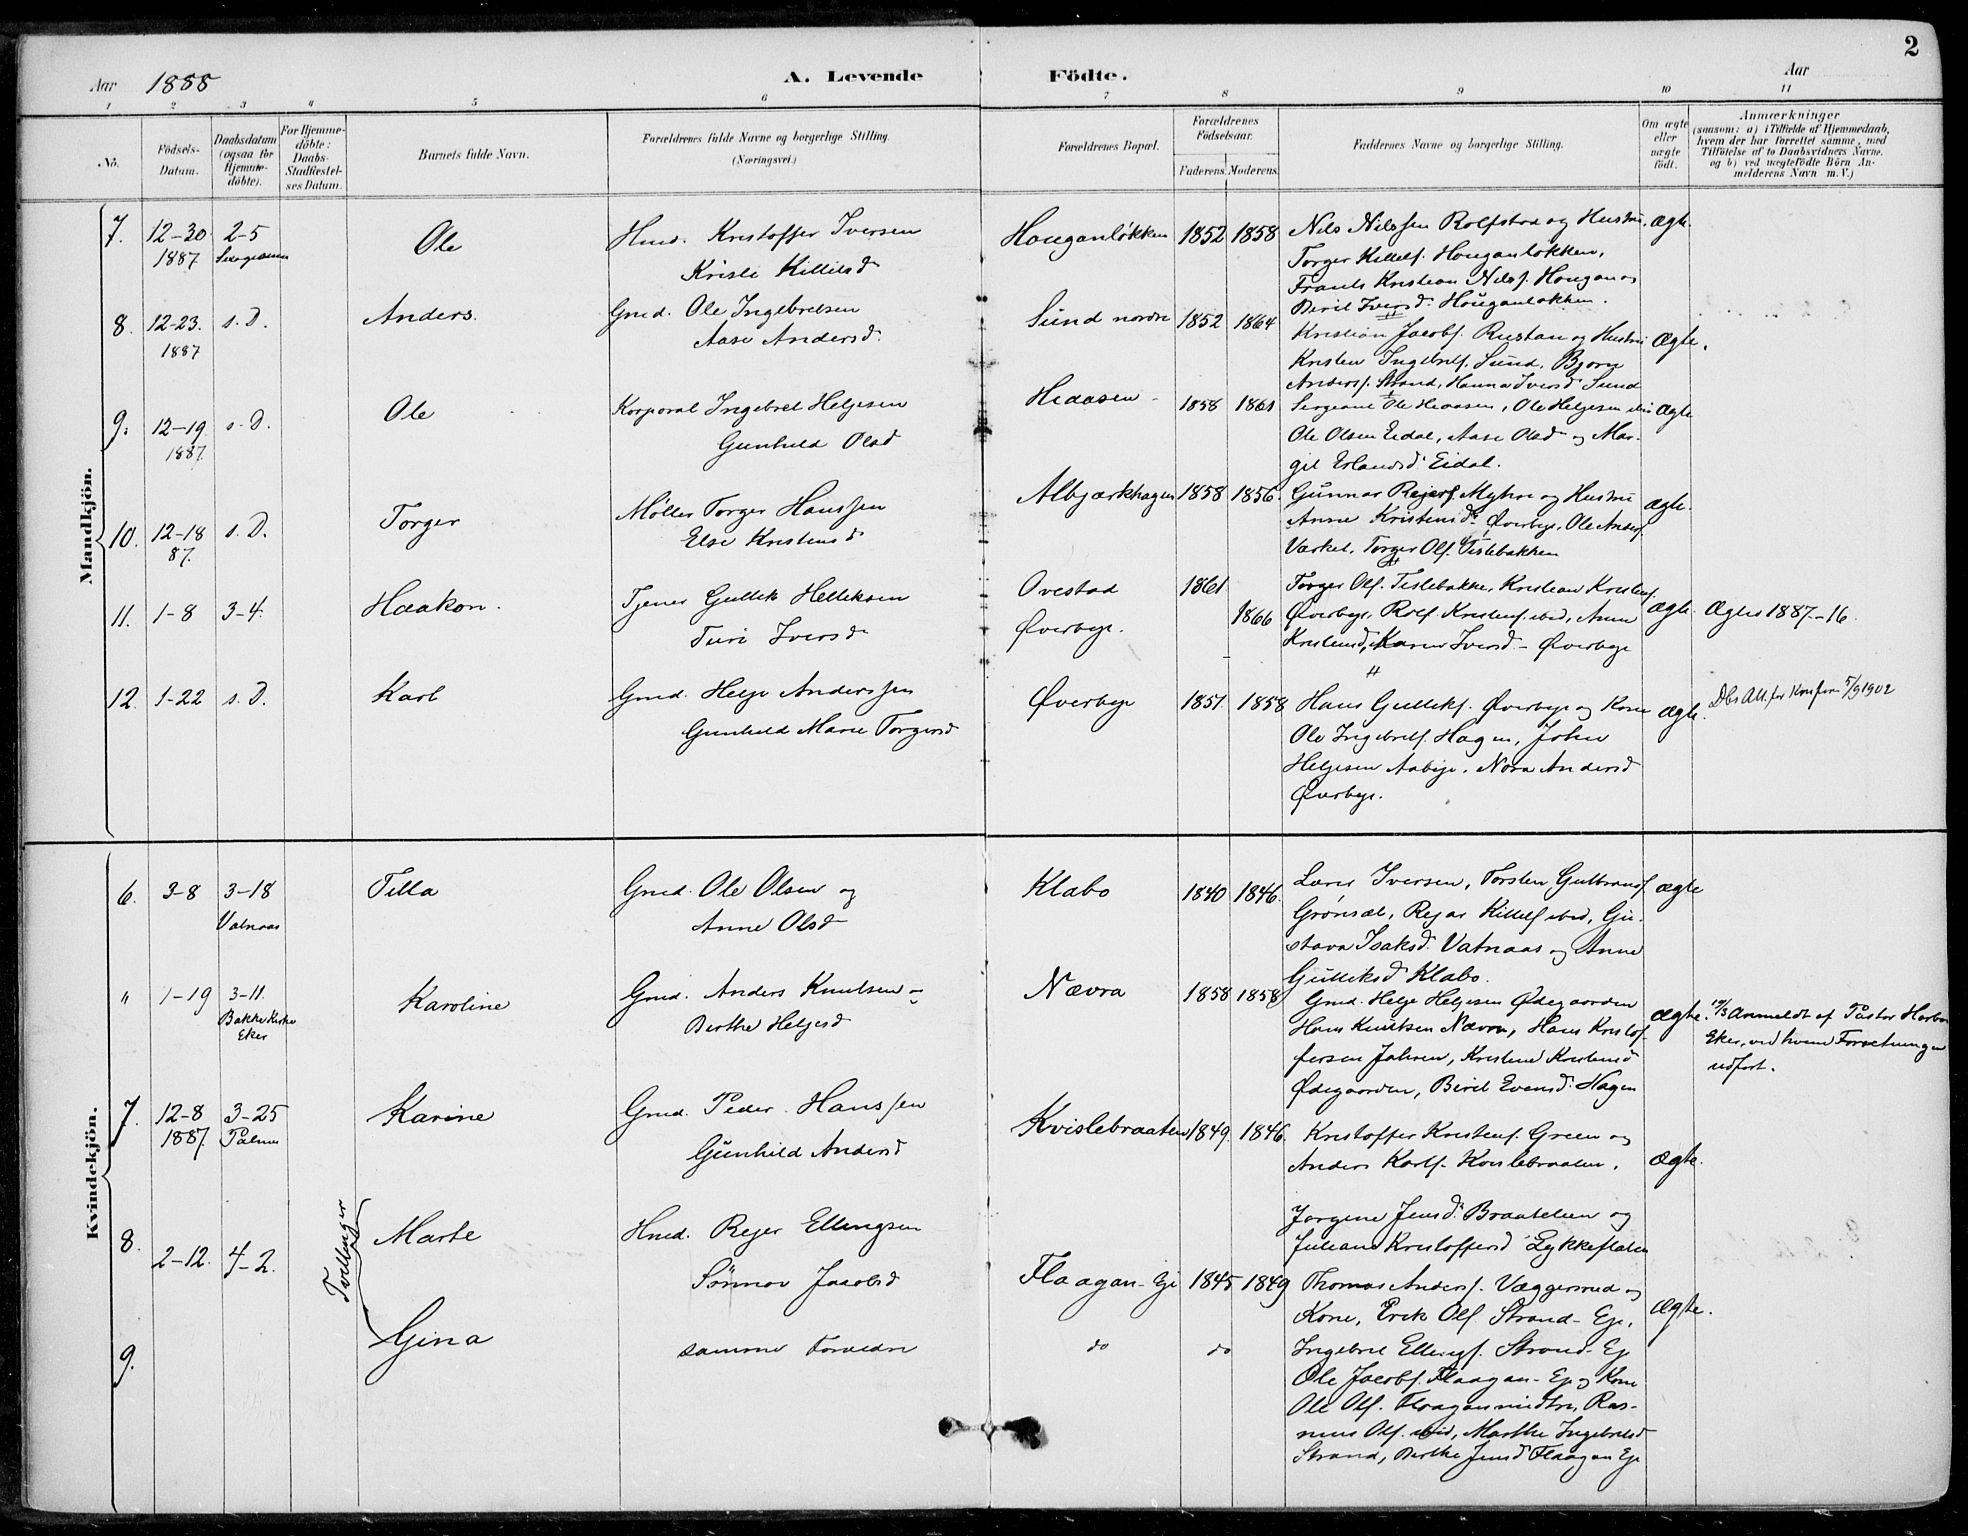 2
Aar 1888
A. Levende Födte.
Aar
1 2 3 4 5 6 7 8 9 10 11
No.
Födsels-Datum.
Daabsdatum (ogsaa for Hjemmedöbte).
For Hjemmedöbte: Daabs-Stadfæstelses Datum.
Barnets fulde Navn.
Forældrenes fulde Navne og borgerlige Stilling. (Næringsvei.)
Forældrenes Bopæl.
Forældrenes Födselsaar.
Faderens. Moderens.
Faddernes Navne og borgerlige Stilling.
Om ægte eller uægte födt.
Anmærkninger
(saasom: a) i Tilfælde af Hjemmedaab, hvem der har forrettet samme, med Tilföielse af to Daabsvidners Navne, og b) ved uægtefödte Börn Anmelderens Navn m.V.)
Mandkjön.
7. 12-30 2-5 Ole Hmd. Kristoffer Iversen Houganløkken 1852 1858 Nils Nilssen Rolfstad og Hustru, ægte.
1887 Kristi Kittilsd Torger Kittelsf. Houganløkken,
Frants Kristian Nilsf. Hougan og
Berit Iversd. Houganløkken.
8. 12-23. s. D. Anders. Gmd. Ole Ingebretsen Sund nordre 1852 1864 Kristian Jacobf. Rustan og Hustru ægte.
1887 Aase Andersd. Kristen Ingebretf. Sund, Bjørn
Andersf. Strand, Hanna Iversd Sund
9. 12-19 s. D. Ole Korporal Ingebret Helgesen Heaasen 1858 1861 Sergeant Ole Heaasen, Ole Helgesen ibid ægte
1887. Gunhild Olsd Ole Olsen Eidal, Aase Olsd og Mar-
git Erlandsd Eidal.
10. 12-18 s. D. Torger Møller Torger Hanssen Albjærkhagen 1858 1856. Gunnar Rejersf. Myhre og Hustru ægte.
87. Else Kristensd Anne Kristensd. Øverbye, Ole Andersf.
Værket, Torger Olf. Tislebakken
11. 1-8 3-4. Haakon. Tjener Gullik Helliksen Ovestad 1861 Torger Olf. Tislebakke, Kristian Kristensf. ægte. Ægtev 1887-16.
Turi Iversd Øverbye. 1866 Øverbye, Rolf Kristensf. ibid, Anne
Kristensd, Karen Iversd - Øverbye
12. 1-22 s. D. Karl Gmd. Helge Anderssen Øverbye 1851. 1858 Hans Gulliksf. Øverbye og Kone ægte. Dbs Att. for Konfirm 5/9 1902
Gunhild Marie Torgersd Ole Ingebretf. Hagen, John
Helgesen Aabye, Nora Andersd
Øverbye.
Kvindekjön.
6. 3-8 3-18 Tilla Gmd. Ole Olsen og Klabo 1840 1846. Lars Iversen, Torsten Gulbransf. ægte
Vatnaas Anne Olsd Grønsæt, Rejar Kittelf ibid, Gu-
stava Isaksd. Vatnaas og Anne
Gulliksd Klabo.
" 1-19 3-11. Karoline Gmd. Anders Knutsen - Nævra 1858 1858 Gmd. Helge Helgesen Ødegaarden ægte. 19/3 Anmeldt af Pastor Horbo
Bakke Kirke Birthe Helgesd Hans Knutsen Nævra, Hans Kristof- Eker, ved hvem Forretningen
Eker fersen Jahren, Kristine Kristensd udført.
Ødegaarden, Berit Evensd. Hagen
7. 12-8 3-25 Karine Gmd. Peder Hanssen Kvislebraaten 1849 1846. Kristoffer Kristensf. Green og ægte.
1887. Palmes Gunhild Andersd Anders Karlf. Kvislebraaten,
Jørgine Jensd. Braatelien og
Juliane Kristoffersd Lykkeflaten
Tvillinger
8. 2-12. 4-2. Marte Hmd. Rejer Ellingsen Flaagan-Eje 1845 1849 Thomas Andersf. Væggersrud og ægte.
Sønnov Jacobsd Kone, Erik Olf. Strand-Eje,
9. Gina samme Forældre do do Ingebret Ellingf. Strand-Ej
Ole Jacobf. Flaagan-Ej og Kone
Ole Olf. Flaagan midtre, Ras-
mus Olf. ibid, Marthe Ingebretsd
Strand, Birthe Jensd Flaagan Eje